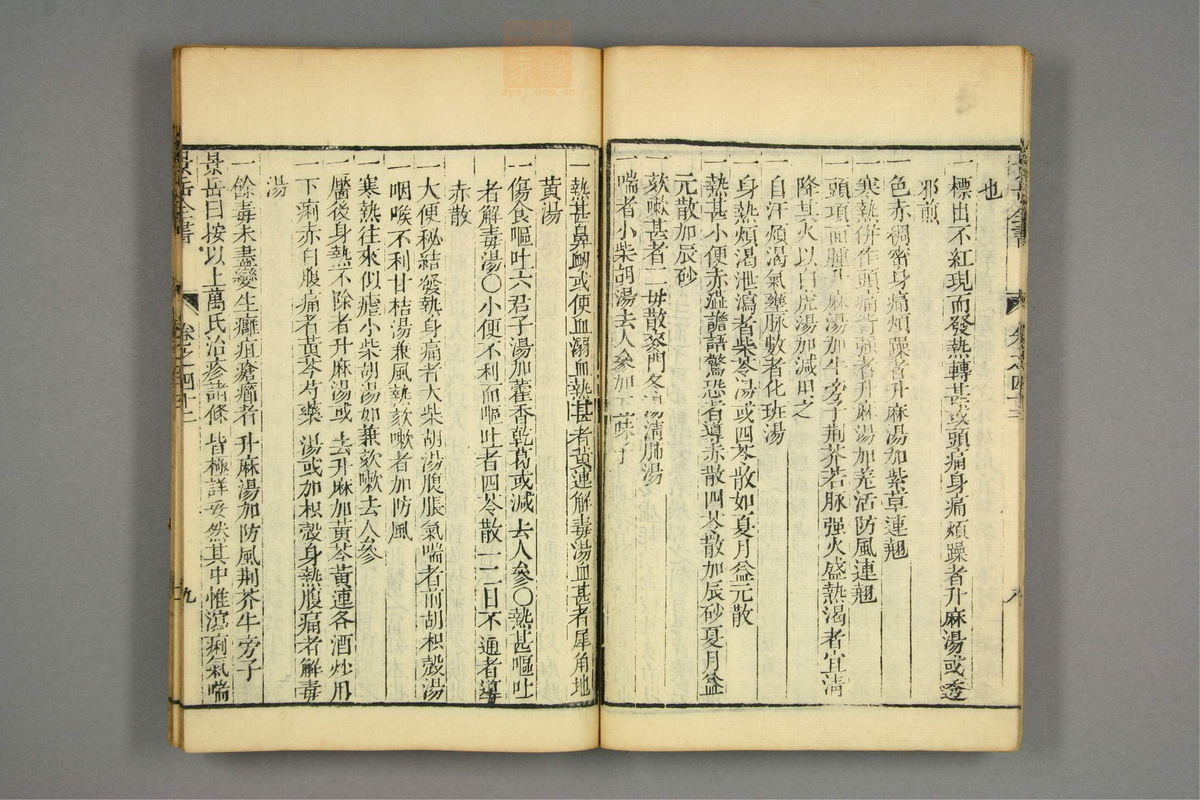 也
一標出不紅現而發熱轉甚或頭痛身痛煩躁者升麻湯或透
邪煎
一色赤稠密身痛煩躁者升麻湯加紫草連翹
一寒熱併作頭痛背強者升麻湯加羌活防風連翹
一頭項面腫升麻湯加牛旁子荆芥若脉强火盛熱渴者宜清
降其火以白虎湯加減用之
一自汗煩渴氣壅脉數者化班湯
一身熱煩渴泄瀉者柴苓湯或四苓散如夏月益元散
一熱甚小便赤澁譫語驚恐者導赤散四苓散加辰砂夏月益
元散加辰砂
一欬嗽甚者二母散麥門冬湯清肺湯
一喘者小柴胡湯去人參加五味子
一熱甚鼻衂或便血溺血熱甚者黃連解毒湯血甚者犀角地
黃湯
一傷食嘔吐六君子湯加藿香乾葛或減去人參〇熱甚嘔吐
者解毒湯〇小便不利而嘔吐者四苓散一二日不通者導
赤散
一大便秘結發熱身痛者大柴胡湯腹脹氣喘者前胡枳殼湯
一咽喉不利甘桔湯兼風熱欬嗽者加防風
一寒熱往來似瘧小柴胡湯如兼欬嗽去人參
一靨後身熱不除者升麻湯或去升麻加黃芩黃連各酒炒用
一下痢赤白腹痛者黃芩芍藥湯或加枳殼身熱腹痛者解毒
湯
一餘毒未盡變生癰疽瘡癤者升麻湯加防風荆芥牛旁子
景岳曰按以上萬氏治疹諸條皆極詳妥然其中惟瀉痢氣喘
景岳全書
卷之四十三
九